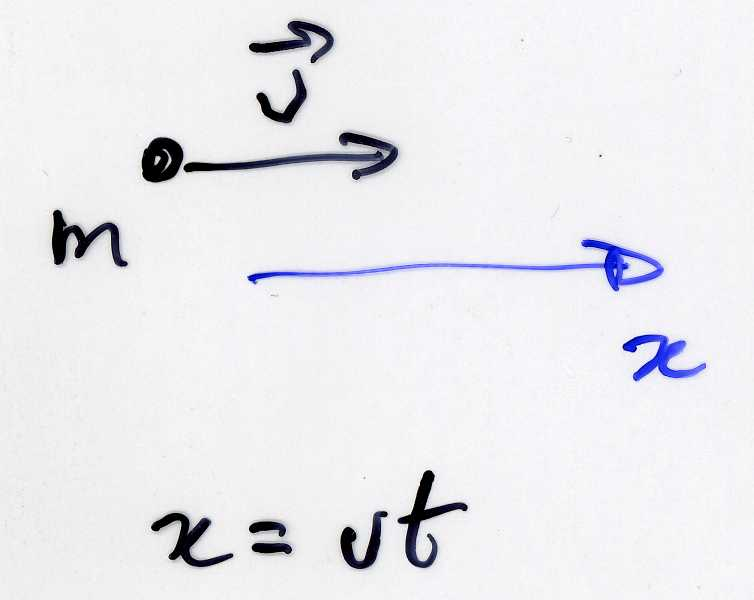 v⃗
m
x
x = vt